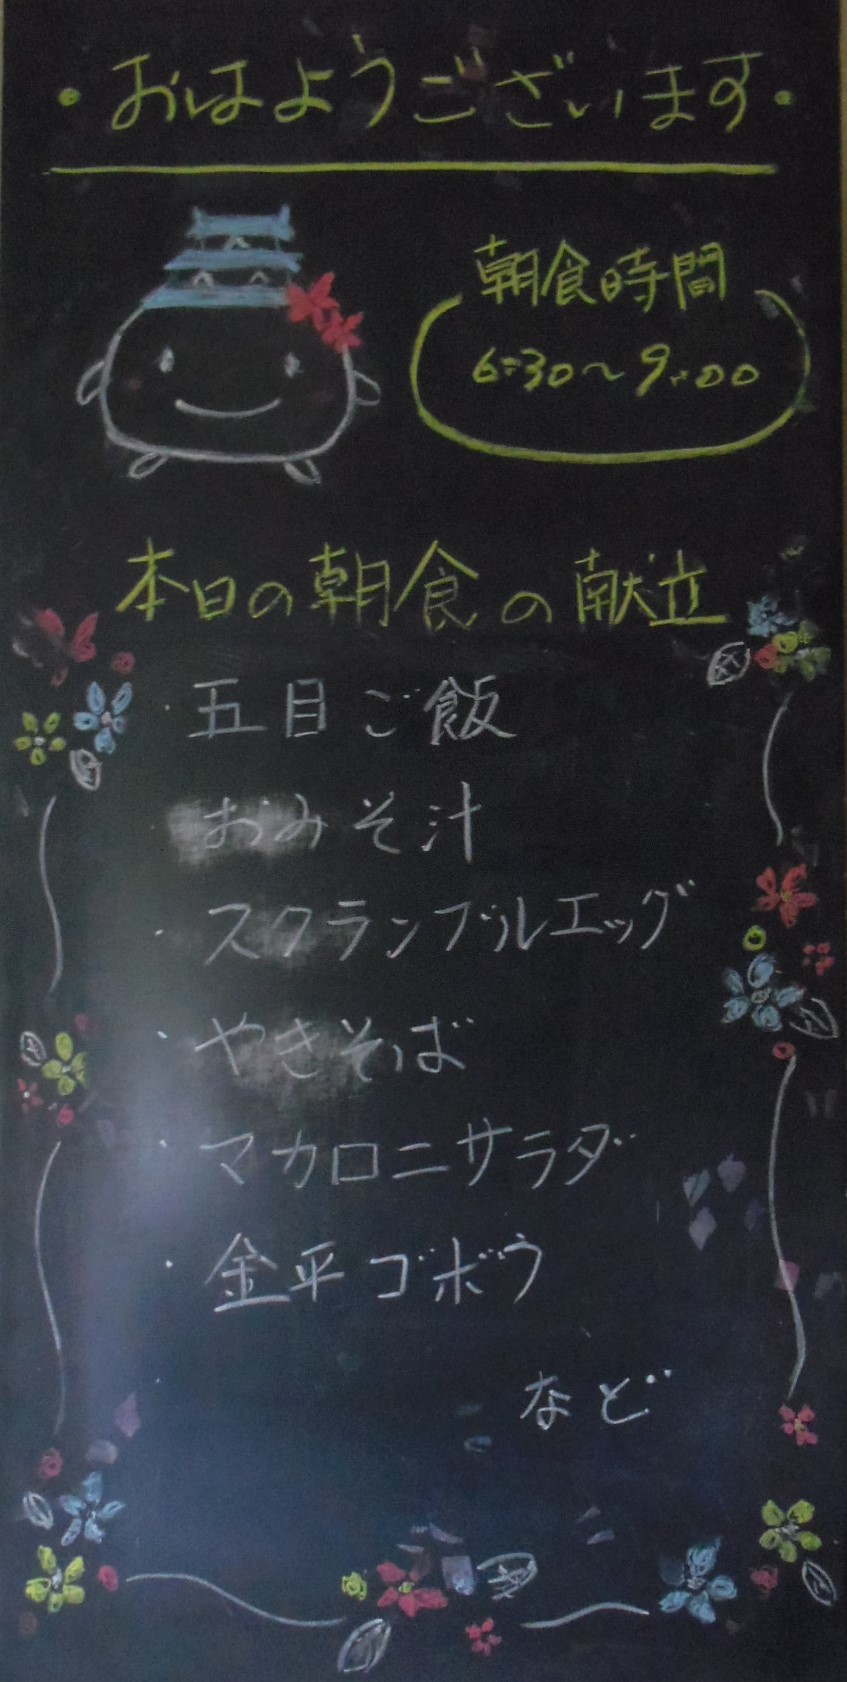 ・おはようございます・
朝食時間
6:30〜9:00
本日の朝食の献立
・五目ご飯
・おみそ汁
・スクランブルエッグ
・やきそば
・マカロニサラダ
・金平ゴボウ
など